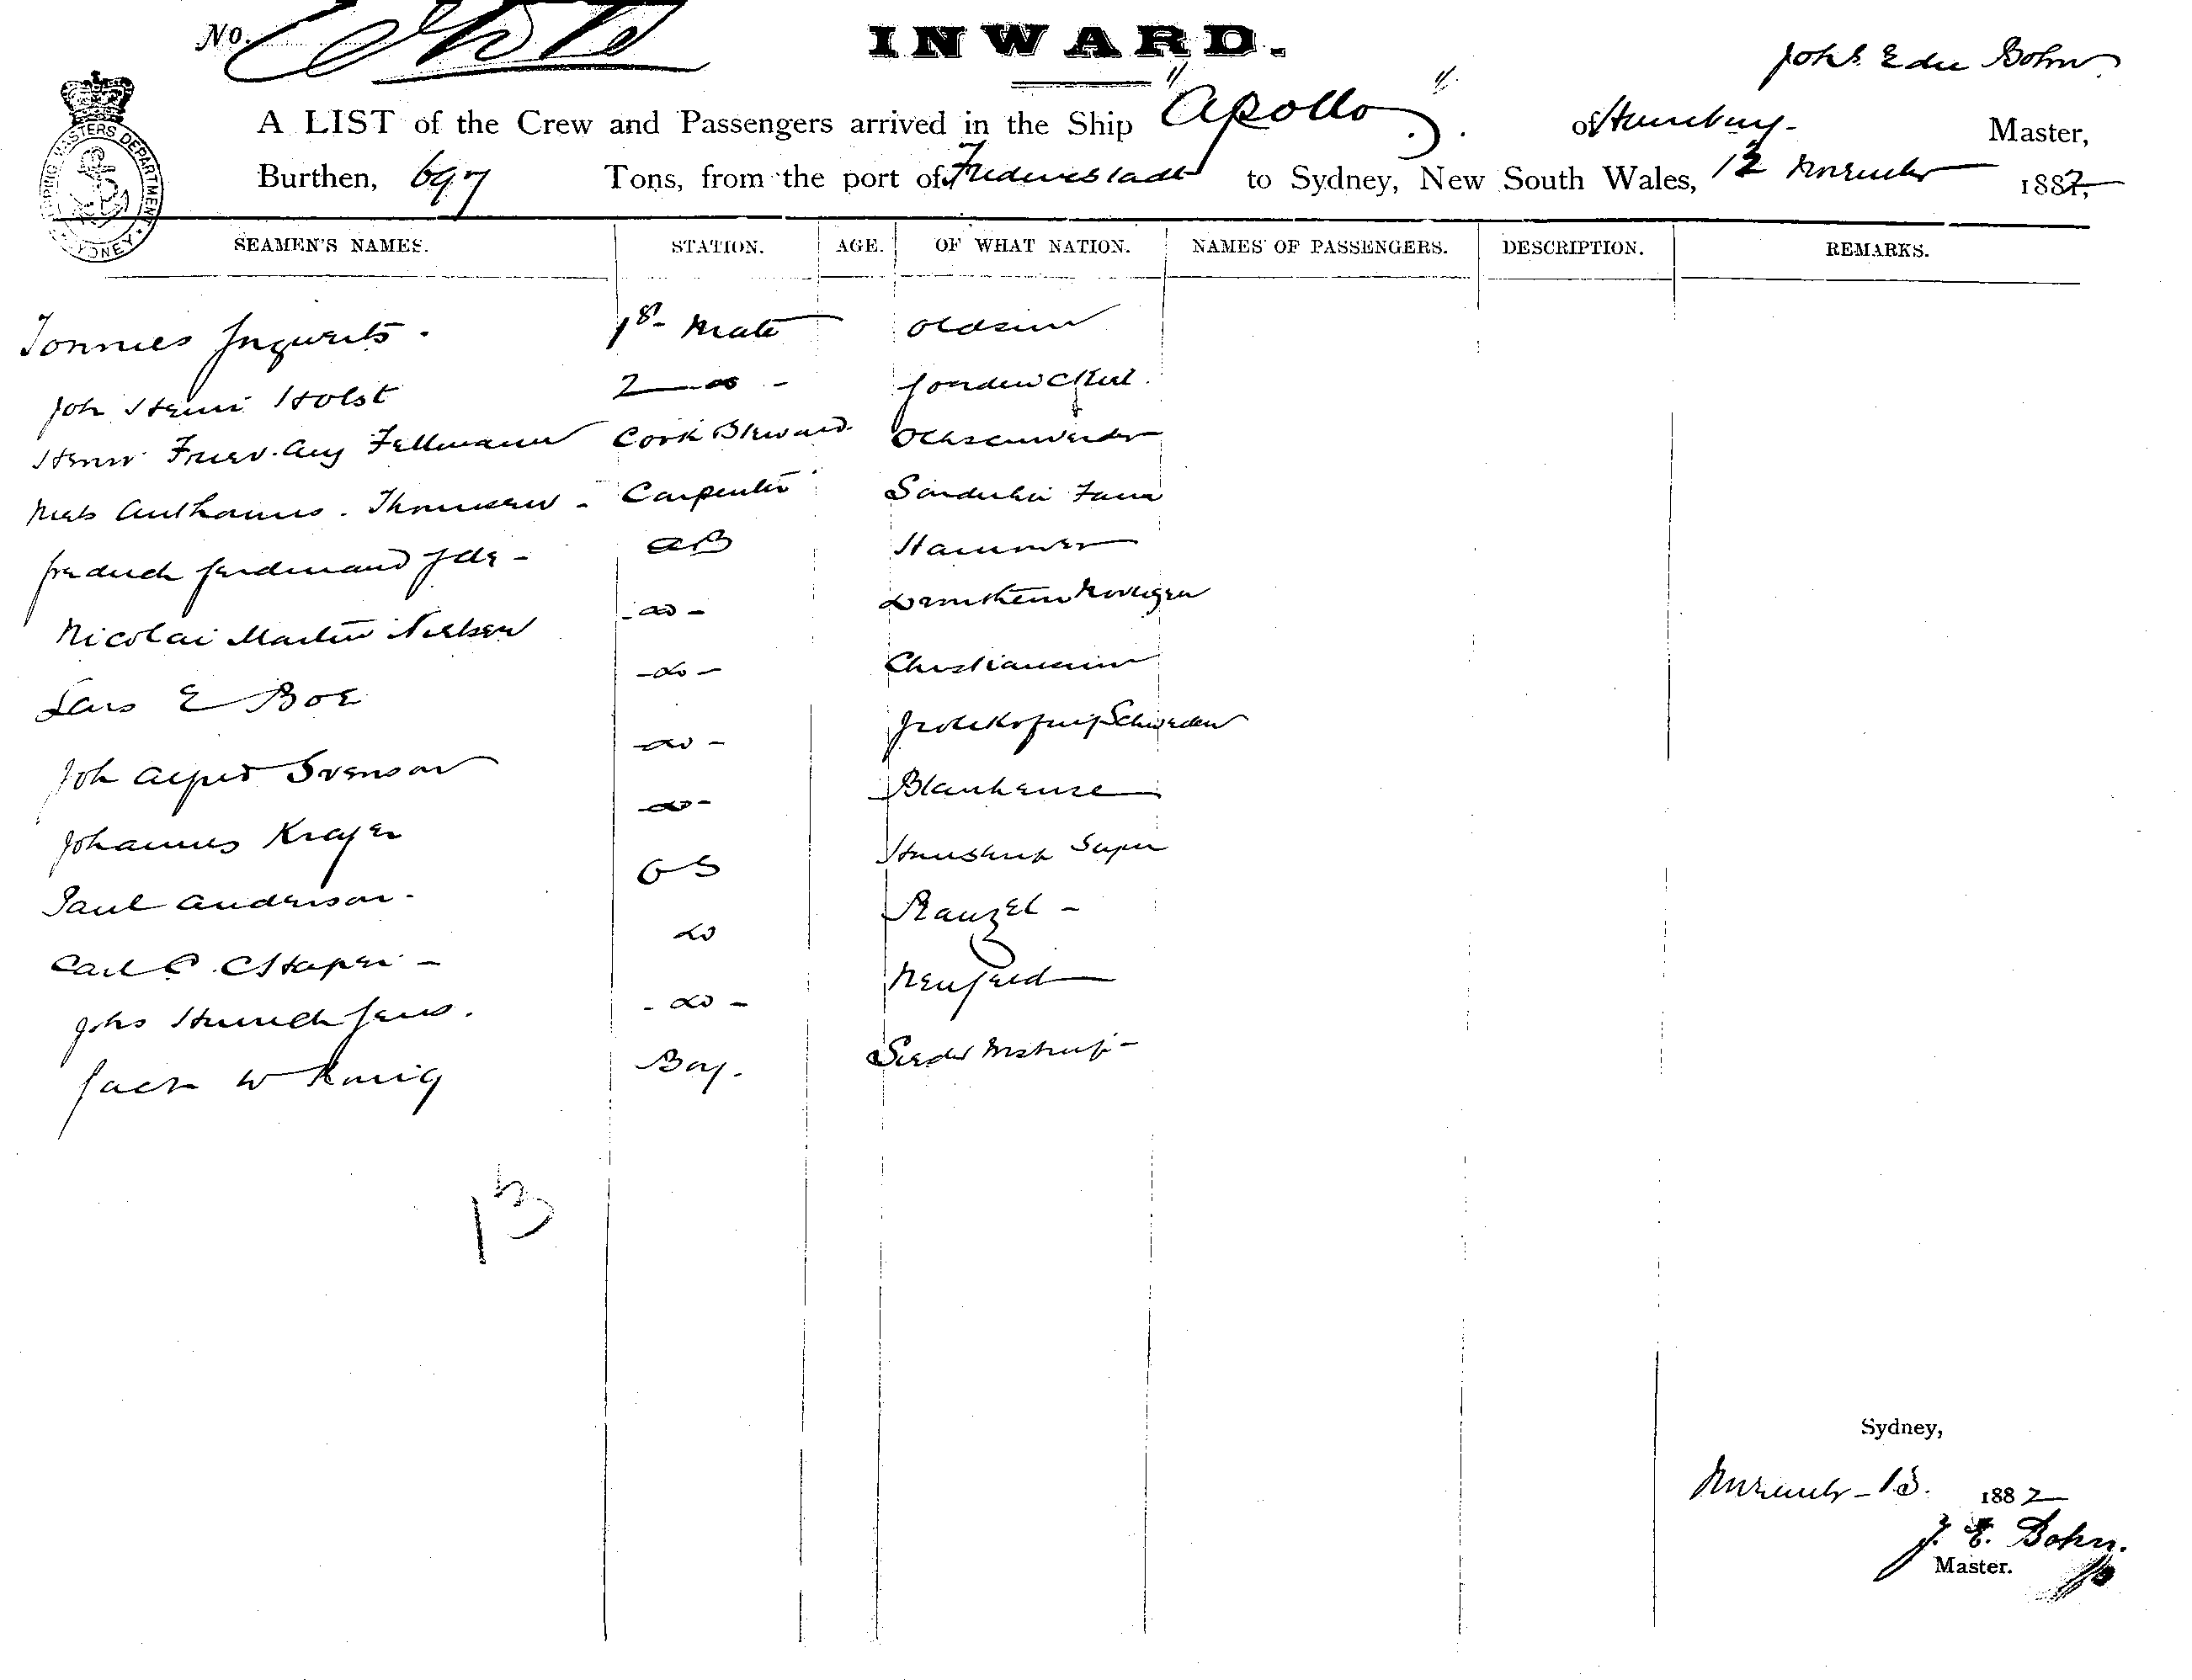 No.
INWARD.
Joh.s Edu Bohn
A LIST of the Crew and Passengers arrived in the Ship "Apollo". of Hamburg Master,
Burthen, 697 Tons, from the port of Frederickstadt to Sydney, New South Wales, 12 November 1882,
SHIPPING MASTERS DEPARTMENT SYDNEY
SEAMEN'S NAMES. STATION. AGE. OF WHAT NATION. NAMES OF PASSENGERS. DESCRIPTION. REMARKS.
Tonnies Ingwerts. 1st Mate Oldsum
Joh Henri Holst 2 - do -
Henri Fried. Aug Fellmann Cook Steward Ochsenwerder
Niels Anthonius. Thomsen - Carpenter
Fredrich Ferdinand - AB Hammer
Nicolai Martin Nielsen - do -
Lars E Boe - do -
Joh Alfred Svenson - do - Schweden
Johannes - do - Blankenese
Paul Anderson. OS
Carl C. - do Ranzel -
Johs Hinrich Jens. - do - Neufeld
Jacob W König Boy.
13
Sydney,
November - 13. 1882
J. E. Bohn.
Master.